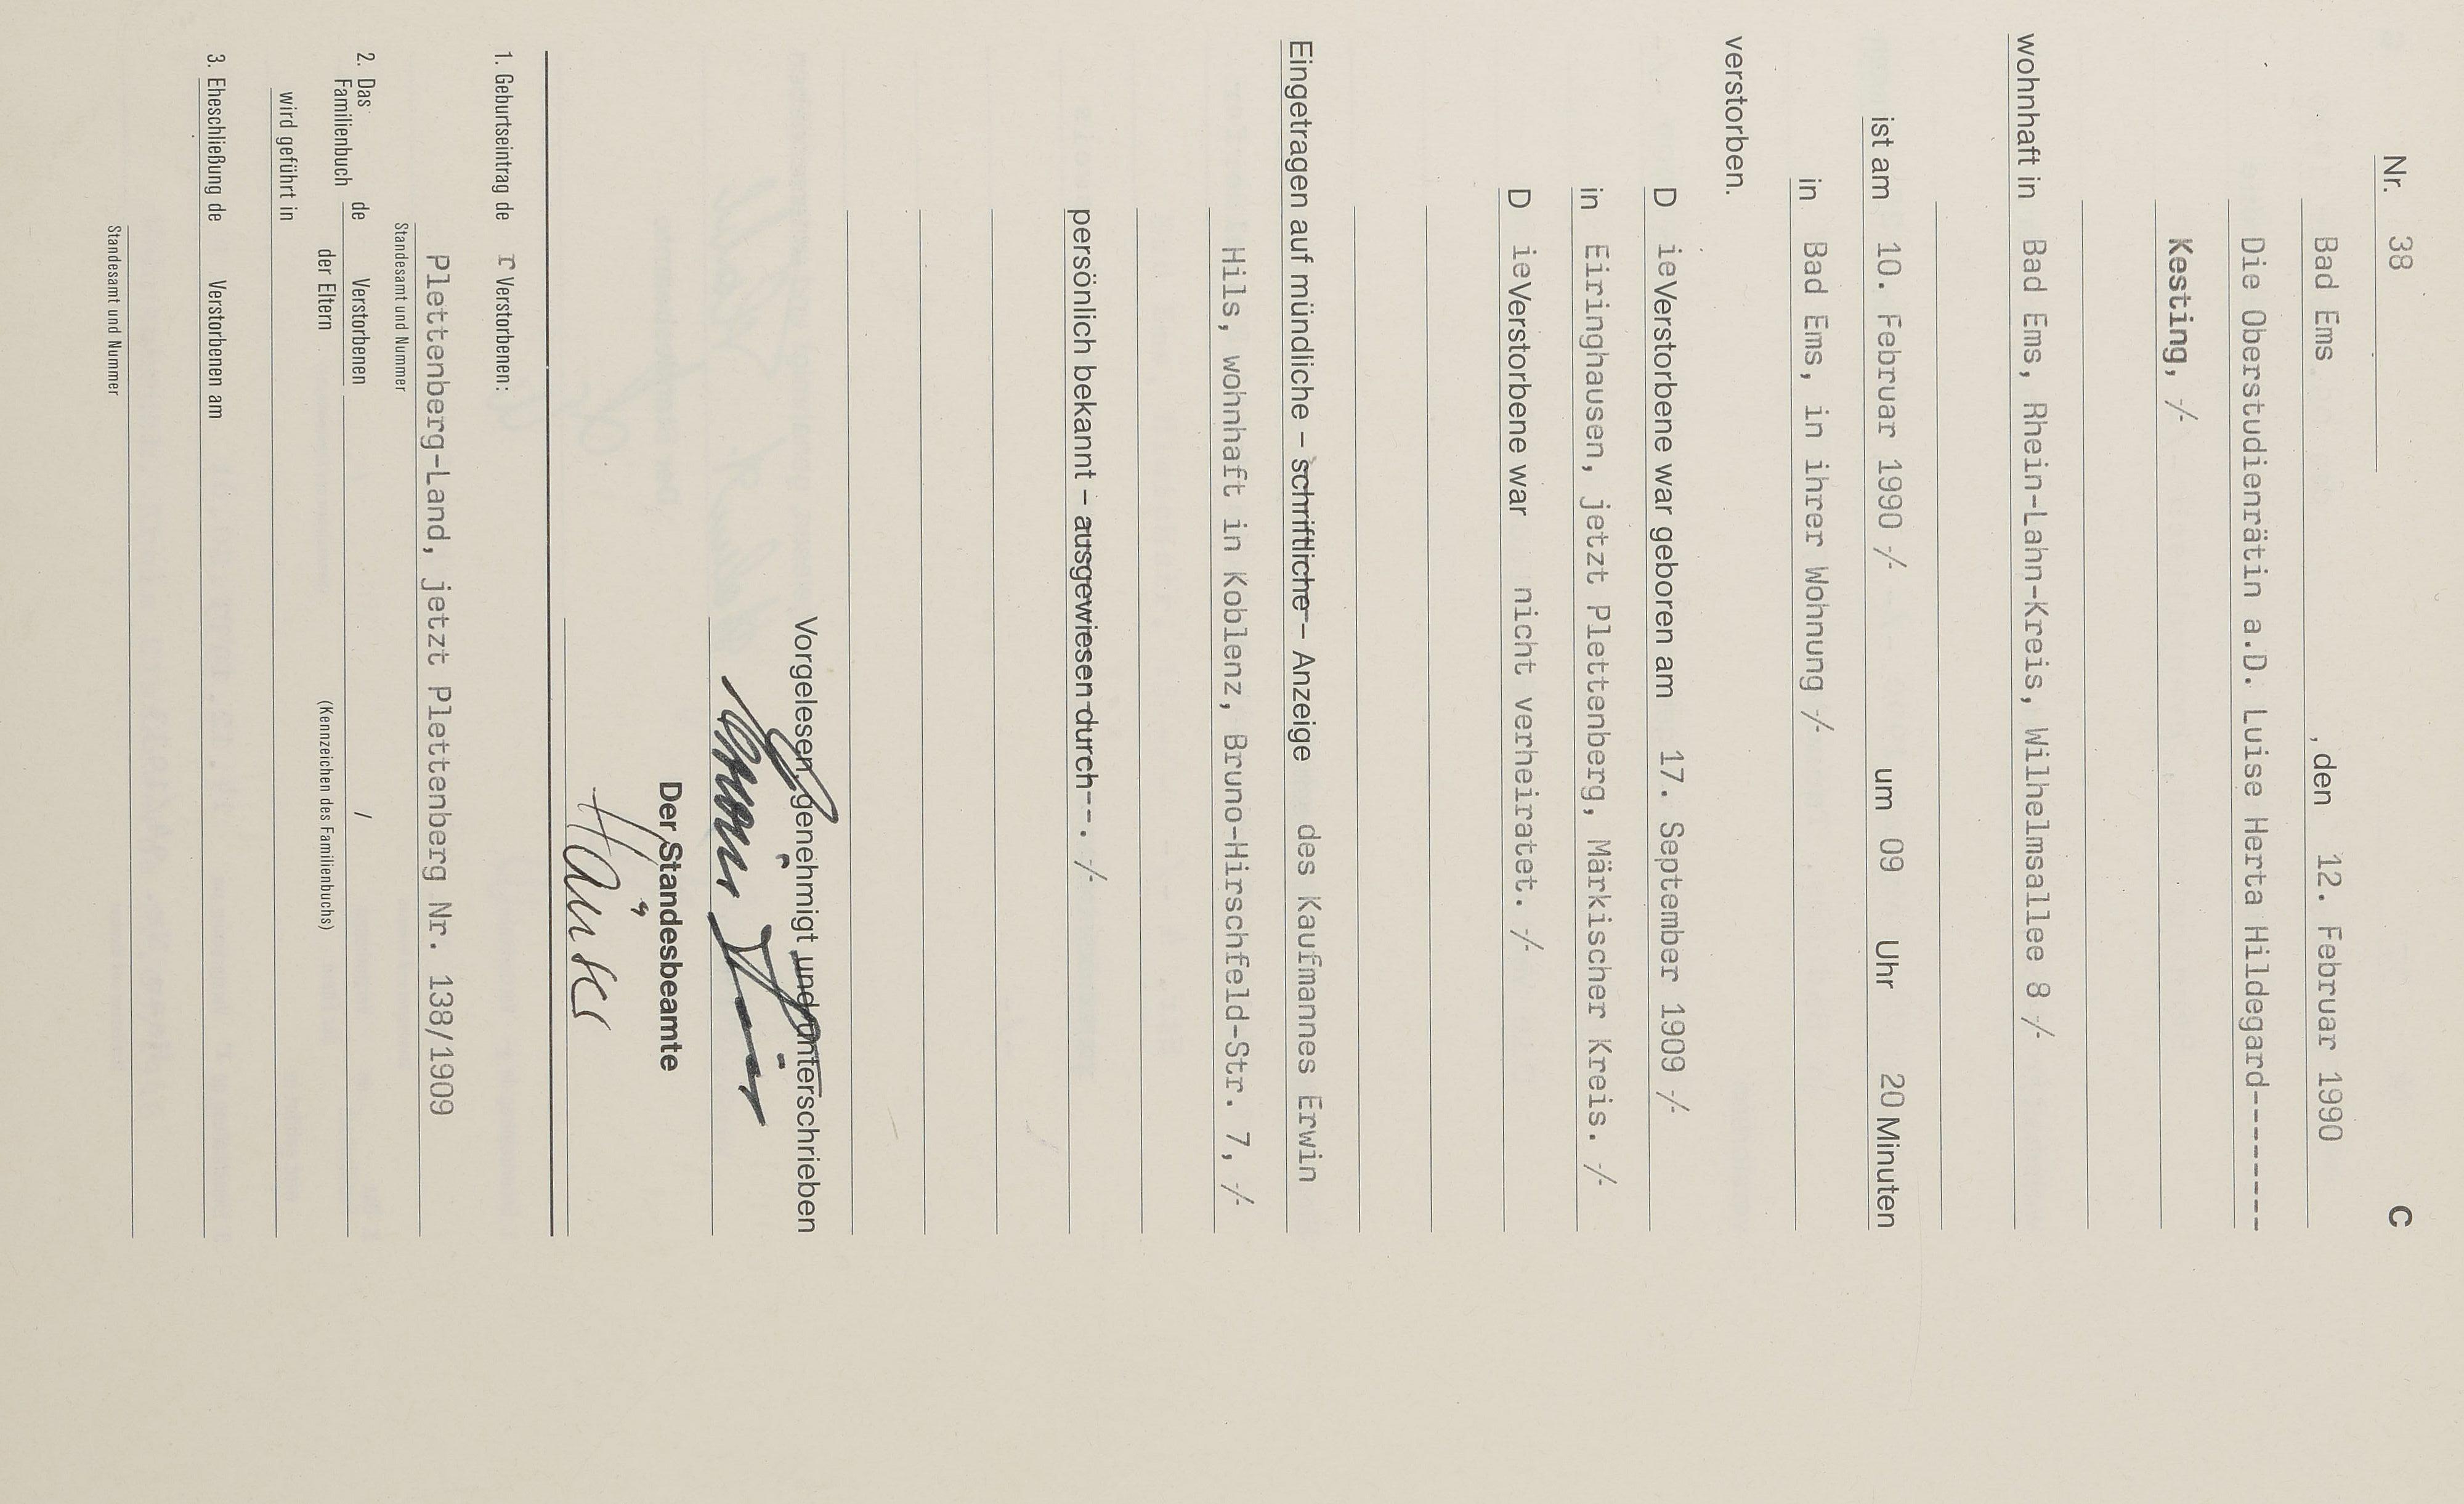 C
Nr. 38
Bad Ems , den 12. Februar 1990
Die Oberstudienrätin a.D. Luise Herta Hildegard--------
Kesting, -/-
wohnhaft in Bad Ems, Rhein-Lahn-Kreis, Wilhelmsallee 8 -/-
ist am 10. Februar 1990 -/- um 09 Uhr 20 Minuten
in Bad Ems, in ihrer Wohnung -/-
verstorben.
D ie Verstorbene war geboren am 17. September 1909 -/-
in Eiringhausen, jetzt Plettenberg, Märkischer Kreis. -/-
D ie Verstorbene war nicht verheiratet. -/-
Eingetragen auf mündliche – schriftliche – Anzeige des Kaufmannes Erwin
Hils, wohnhaft in Koblenz, Bruno-Hirschfeld-Str. 7, -/-
persönlich bekannt – ausgewiesen durch--. -/-
Vorgelesen, genehmigt und unterschrieben
Der Standesbeamte
1. Geburtseintrag de r Verstorbenen:
Plettenberg-Land, jetzt Plettenberg Nr. 138/1909
Standesamt und Nummer
2. Das Familienbuch de Verstorbenen /
der Eltern (Kennzeichen des Familienbuchs)
wird geführt in
3. Eheschließung de Verstorbenen am
Standesamt und Nummer